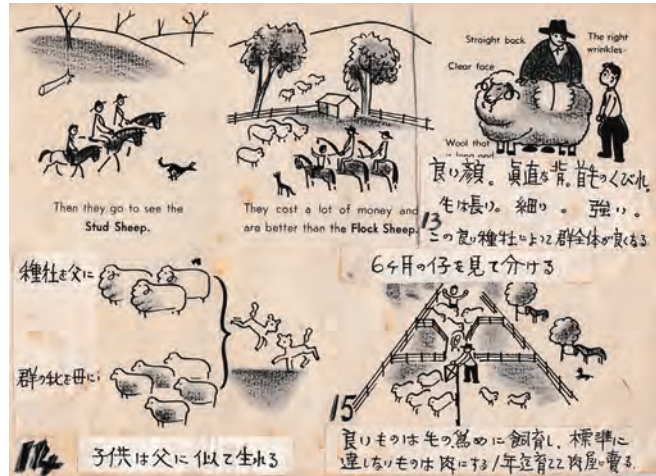 Then they go to see the
Stud Sheep.
They cost a lot of money and
are better than the Flock Sheep.
Straight back
The right
wrinkles
Clear face
Wool that
良い顔。真直な背。首毛のくびれ。
毛は長い。細い。強い。
13
この良い種牡によって群全体が良くなる
6ヶ月の仔を見て分ける
種牡を父に
群の牝を母に
114
子供は父に似て生れる
15
良いものは毛の為めに飼育し、標準に
達しないものは肉にする1年位育てて肉屋に賣る。